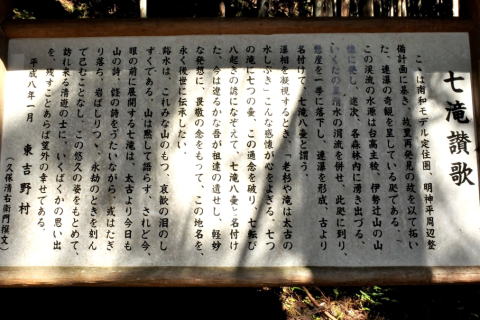 七滝讃歌
ここは南和モデル定住圏 明神平周辺整
備計画に基き、故里再発見の故を以て拓い
た、連瀑の奇観を呈している処である。
この渓流の水源は台高主稜、伊勢辻山の山
懐に発し、逐次、各森林内に湧き出づる、
いくたの真清水の渭流を併せ、此処に到り、
懸崖を一挙に落下し、連瀑を形成、古より
名付けて、七滝八壷と謂う。
瀑相を凝視するとき、「老杉や滝は太古の
水しぶき」こんな感懐が心をよぎる。七つ
の滝に七つの壷、この通念を破り、七転び
八起きの諺になぞえて、七滝八壷と名付け
た、今は遼るかな吾が祖達の遺せし、軽妙
な発想に、畏敬の念をもって、この地名を、
永く後世に伝承したい。
谿水は、これみな山のもつ、哀歓の泪のし
ずくである。山は黙して語らず、されど今、
眼の前に展開する七滝は、太古より今日も
山の詩、谿の詩をうたいながら、或はたぎ
り落ち、岩ばしりつゝ、永劫のときを刻ん
で已むことなし。この悠久の姿をもとめて、
訪れ来る清遊の士に、いくばくかの思い出
を、残すことあらば望外の幸せである。
平成八年一月 東吉野村
(久保清右衛門撰文)